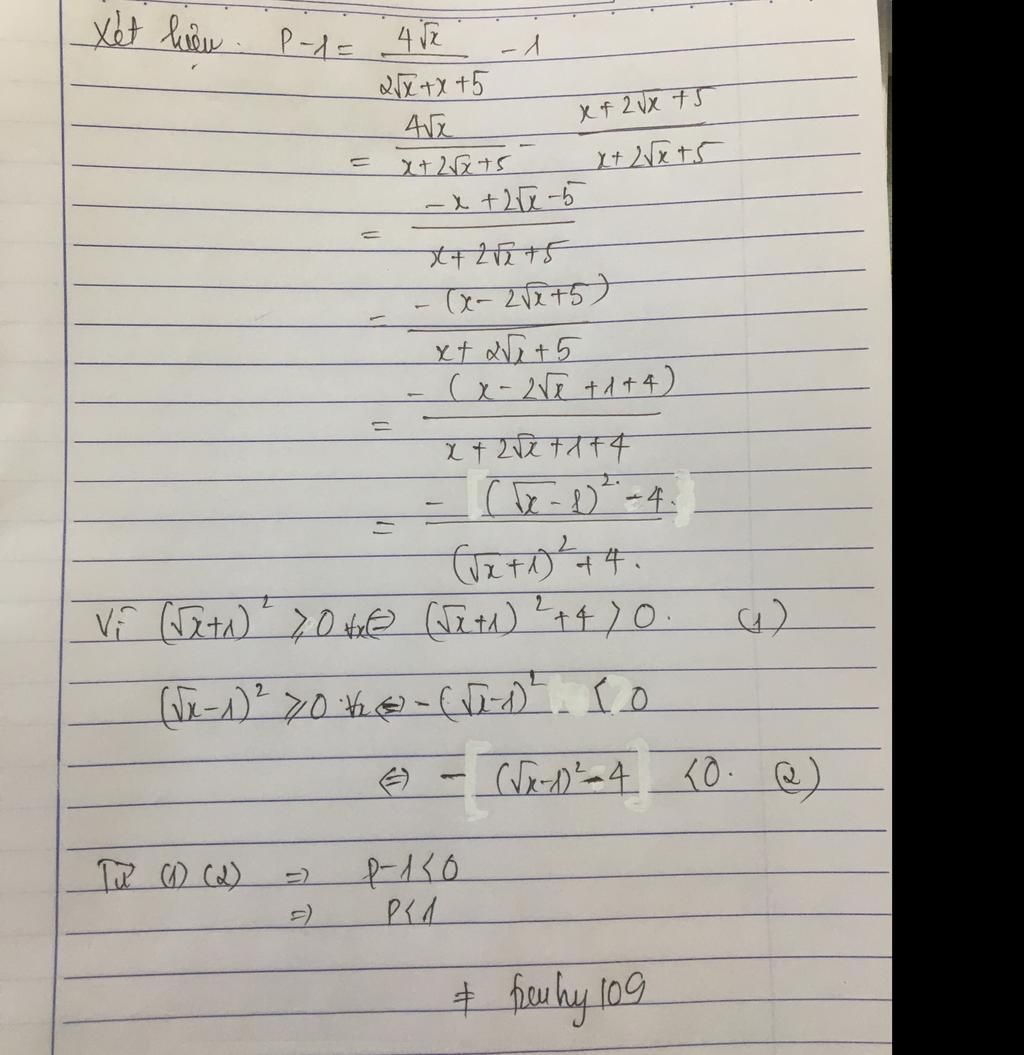 Xét hiệu. P-1 = 4√x / 2√x+x+5 - 1
= 4√x / x+2√x+5 - x+2√x+5 / x+2√x+5
= -x+2√x-5 / x+2√x+5
= -(x-2√x+5) / x+2√x+5
= -(x-2√x+1+4) / x+2√x+1+4
= -[(√x-1)²-4.] / (√x+1)²+4.
Vì (√x+1)² ⩾0 ∀x⇔ (√x+1)²+4 > 0. (1)
(√x-1)² ⩾0 ∀x ⇔ -(√x-1)² < 0
⇔ -[(√x-1)²-4] <0. (2)
Từ (1) (2) ⇒ P-1<0
⇒ P<1